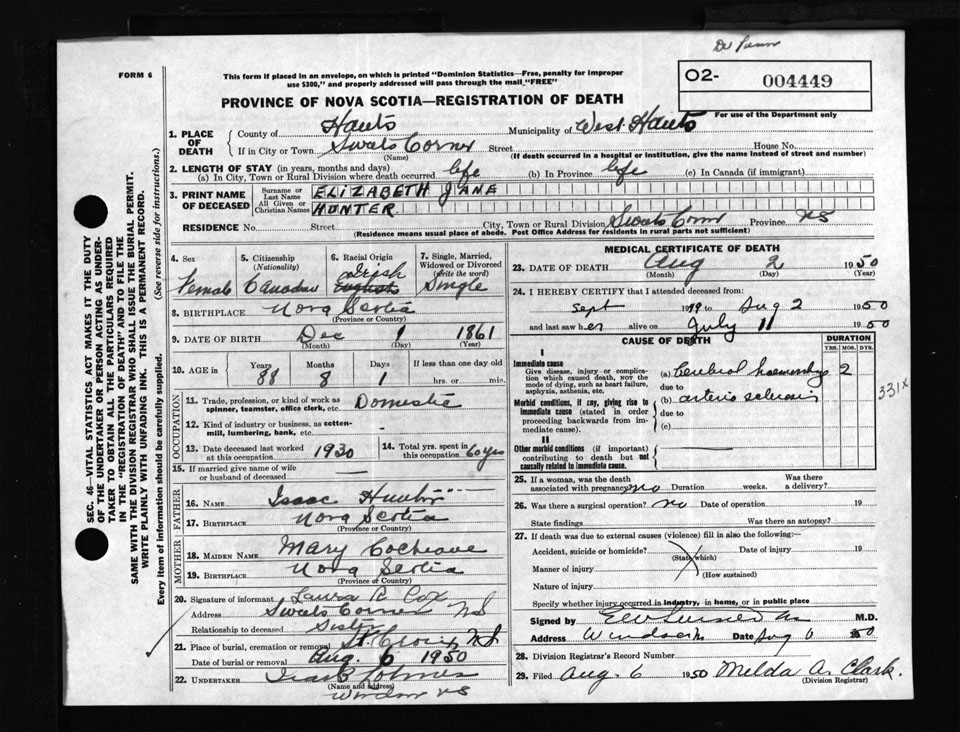 FORM 6
This form if placed in an envelope, on which is printed "Dominion Statistics—Free, penalty for improper
use $300," and properly addressed will pass through the mail "FREE"
O2- 004449
For use of the Department only
PROVINCE OF NOVA SCOTIA—REGISTRATION OF DEATH
1. PLACE OF DEATH
County of Hants Municipality of West Hants
If in City or Town Swets Corner Street House No.
(Name) (If death occurred in a hospital or institution, give the name instead of street and number)
2. LENGTH OF STAY (in years, months and days)
(a) In City, Town or Rural Division where death occurred life (b) In Province life (c) In Canada (if immigrant)
3. PRINT NAME OF DECEASED
Surname or Last Name ELIZABETH JANE
All Given or Christian Names HUNTER
RESIDENCE No. Street City, Town or Rural Division Swets Corner Province NS
(Residence means usual place of abode. Post Office Address for residents in rural parts not sufficient)
4. Sex Female
5. Citizenship (Nationality) Canadian
6. Racial Origin Irish English
7. Single, Married, Widowed or Divorced (write the word) Single
8. BIRTHPLACE Nova Scotia
(Province or Country)
9. DATE OF BIRTH Dec 1 1861
(Month) (Day) (Year)
10. AGE in Years 88 Months 8 Days 1 If less than one day old hrs. or min.
OCCUPATION
11. Trade, profession, or kind of work as spinner, teamster, office clerk, etc. Domestic
12. Kind of industry or business, as cotten-mill, lumbering, bank, etc. -
13. Date deceased last worked at this occupation 1930
14. Total yrs. spent in this occupation 60 yrs
15. If married give name of wife or husband of deceased
FATHER
16. NAME Isaac Hunter
17. BIRTHPLACE Nova Scotia
(Province or Country)
MOTHER
18. MAIDEN NAME Mary Cochrane
19. BIRTHPLACE Nova Scotia
(Province of Country)
20. Signature of informant Laura R Cox
Address Swets Corner NS
Relationship to deceased Sister
21. Place of burial, cremation or removal St. Croix, N.S
Date of burial or removal Aug. 6 1950
22. UNDERTAKER
(Name and address)
Windsor NS
MEDICAL CERTIFICATE OF DEATH
23. DATE OF DEATH Aug 2 1950
(Month) (Day) (Year)
24. I HEREBY CERTIFY that I attended deceased from:
Sept 1949 to Aug 2 1950
and last saw her alive on July 11 1950
CAUSE OF DEATH
DURATION
YRS. MOS. DYS.
I
Immediate cause
Give disease, injury or complication which caused death, not the mode of dying, such as heart failure, asphyxia, asthenia, etc.
(a) Cerebral haemorrhage 2
due to
Morbid conditions, if any, giving rise to immediate cause (stated in order proceeding backwards from immediate cause).
(b) arterio sclerosis
due to
(c)
331X
II
Other morbid conditions (if important) contributing to death but not causally related to immediate cause.
25. If a woman, was the death associated with pregnancy no Duration weeks. Was there a delivery?
26. Was there a surgical operation? no Date of operation 19
State findings Was there an autopsy?
27. If death was due to external causes (violence) fill in also the following:—
Accident, suicide or homicide? (State which) Date of injury 19
Manner of injury (How sustained)
Nature of injury
Specify whether injury occurred in industry, in home, or in public place
Signed by M.D.
Address Windsor Date Aug 6 50
28. Division Registrar's Record Number
29. Filed Aug. 6 1950 Melda A. Clark.
(Division Registrar)
SEC. 46—VITAL STATISTICS ACT MAKES IT THE DUTY
OF THE UNDERTAKER OR PERSON ACTING AS UNDER-
TAKER TO OBTAIN ALL THE PARTICULARS REQUIRED
IN THE "REGISTRATION OF DEATH" AND TO FILE THE
SAME WITH THE DIVISION REGISTRAR WHO SHALL ISSUE THE BURIAL PERMIT.
WRITE PLAINLY WITH UNFADING INK. THIS IS A PERMANENT RECORD.
Every item of information should be carefully supplied. (See reverse side for instructions.)